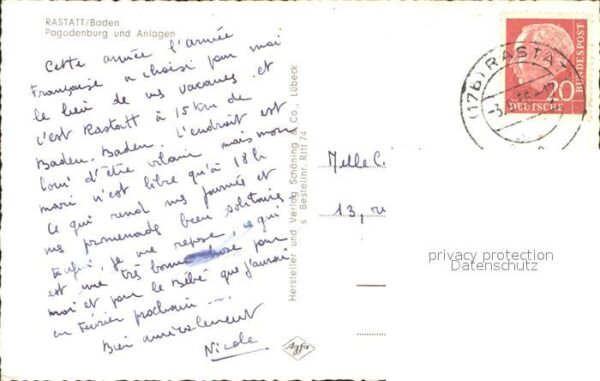 RASTATT/Baden
Pagodenburg und Anlagen
Cette année l'armée
Française a choisi pour moi
le lieu de ms vacances et
c'est Rastatt à 15 km de
Baden. Baden. L'endroit est
loin d'être vilain mais mon
mari n'est libre qu'à 18h
Ce qui rend ms journées et
ms promenades bien solitaires
Enfin, je me repose, ce qui
est une très bonne chose pour
moi et pour le Bébé que j'aurai
en Février prochain ...
Bien amicalement
Nicole
Hersteller und Verlag Schöning & Co., Lübeck
Bestellnr. Ratt 74
Agfa
Melle C.
13, ru
(17b) RASTATT
DEUTSCHE
BUNDESPOST
20
privacy protection
Datenschutz